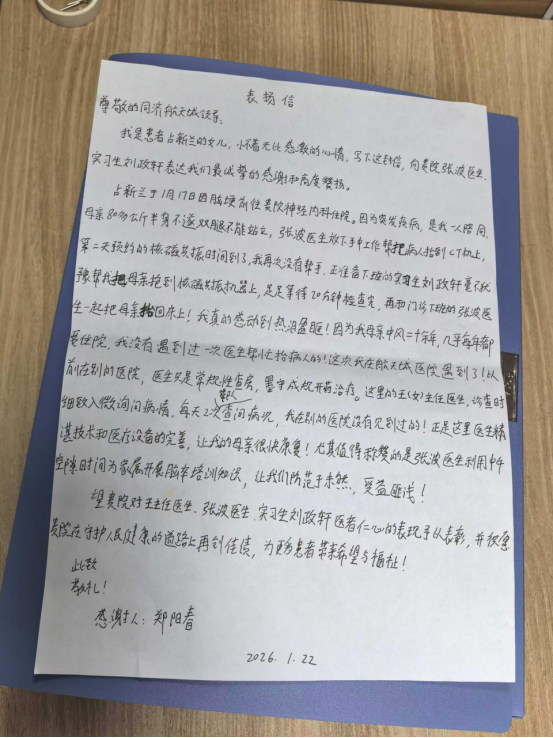 表扬信
尊敬的同济航天城领导:
我是患者占新兰的女儿,怀着无比感激的心情,写下这封信,向贵院张波医生、
实习生刘政轩表达我们最诚挚的感谢和高度赞扬。
占新兰于1月17日因脑梗前往贵院神经内科住院。因为突发疾病,是我一人陪同,
母亲80多公斤半身不遂双腿不能站立,张波医生放下手中工作帮把病人抬到CT机上,
第二天预约的核磁共振时间到了,我再次没有帮手,正准备下班的实习生刘政轩毫不犹
豫帮我把母亲抬到核磁共振机器上,足足等待20分钟检查完,再和门诊下班的张波医
生一起把母亲抬回床上!我真的感动到热泪盈眶!因为我母亲中风二十余年,几乎每年都
要住院,我没有遇到过一次医生帮忙抬病人的!这次我在航天城医院遇到了!以
前在别的医院,医生只是常规性查房,墨守成规开药治疗。这里的王(女)主任医生,诊查时
细致入微询问病情,每天2次带队查问病况,我在别的医院没有见到过的!正是这里医生精
湛技术和医疗设备的完善,让我的母亲很快康复!尤其值得称赞的是张波医生利用中午
空隙时间为家属开展脑卒培训知识,让我们防范于未然,受益匪浅!
望贵院对王主任医生、张波医生、实习生刘政轩医者仁心的表现予以表彰,并祝愿
贵院在守护人民健康的道路上再创佳绩,为更多患者带来希望与福祉!
此致
敬礼!
感谢人:郑阳春
2026.1.22